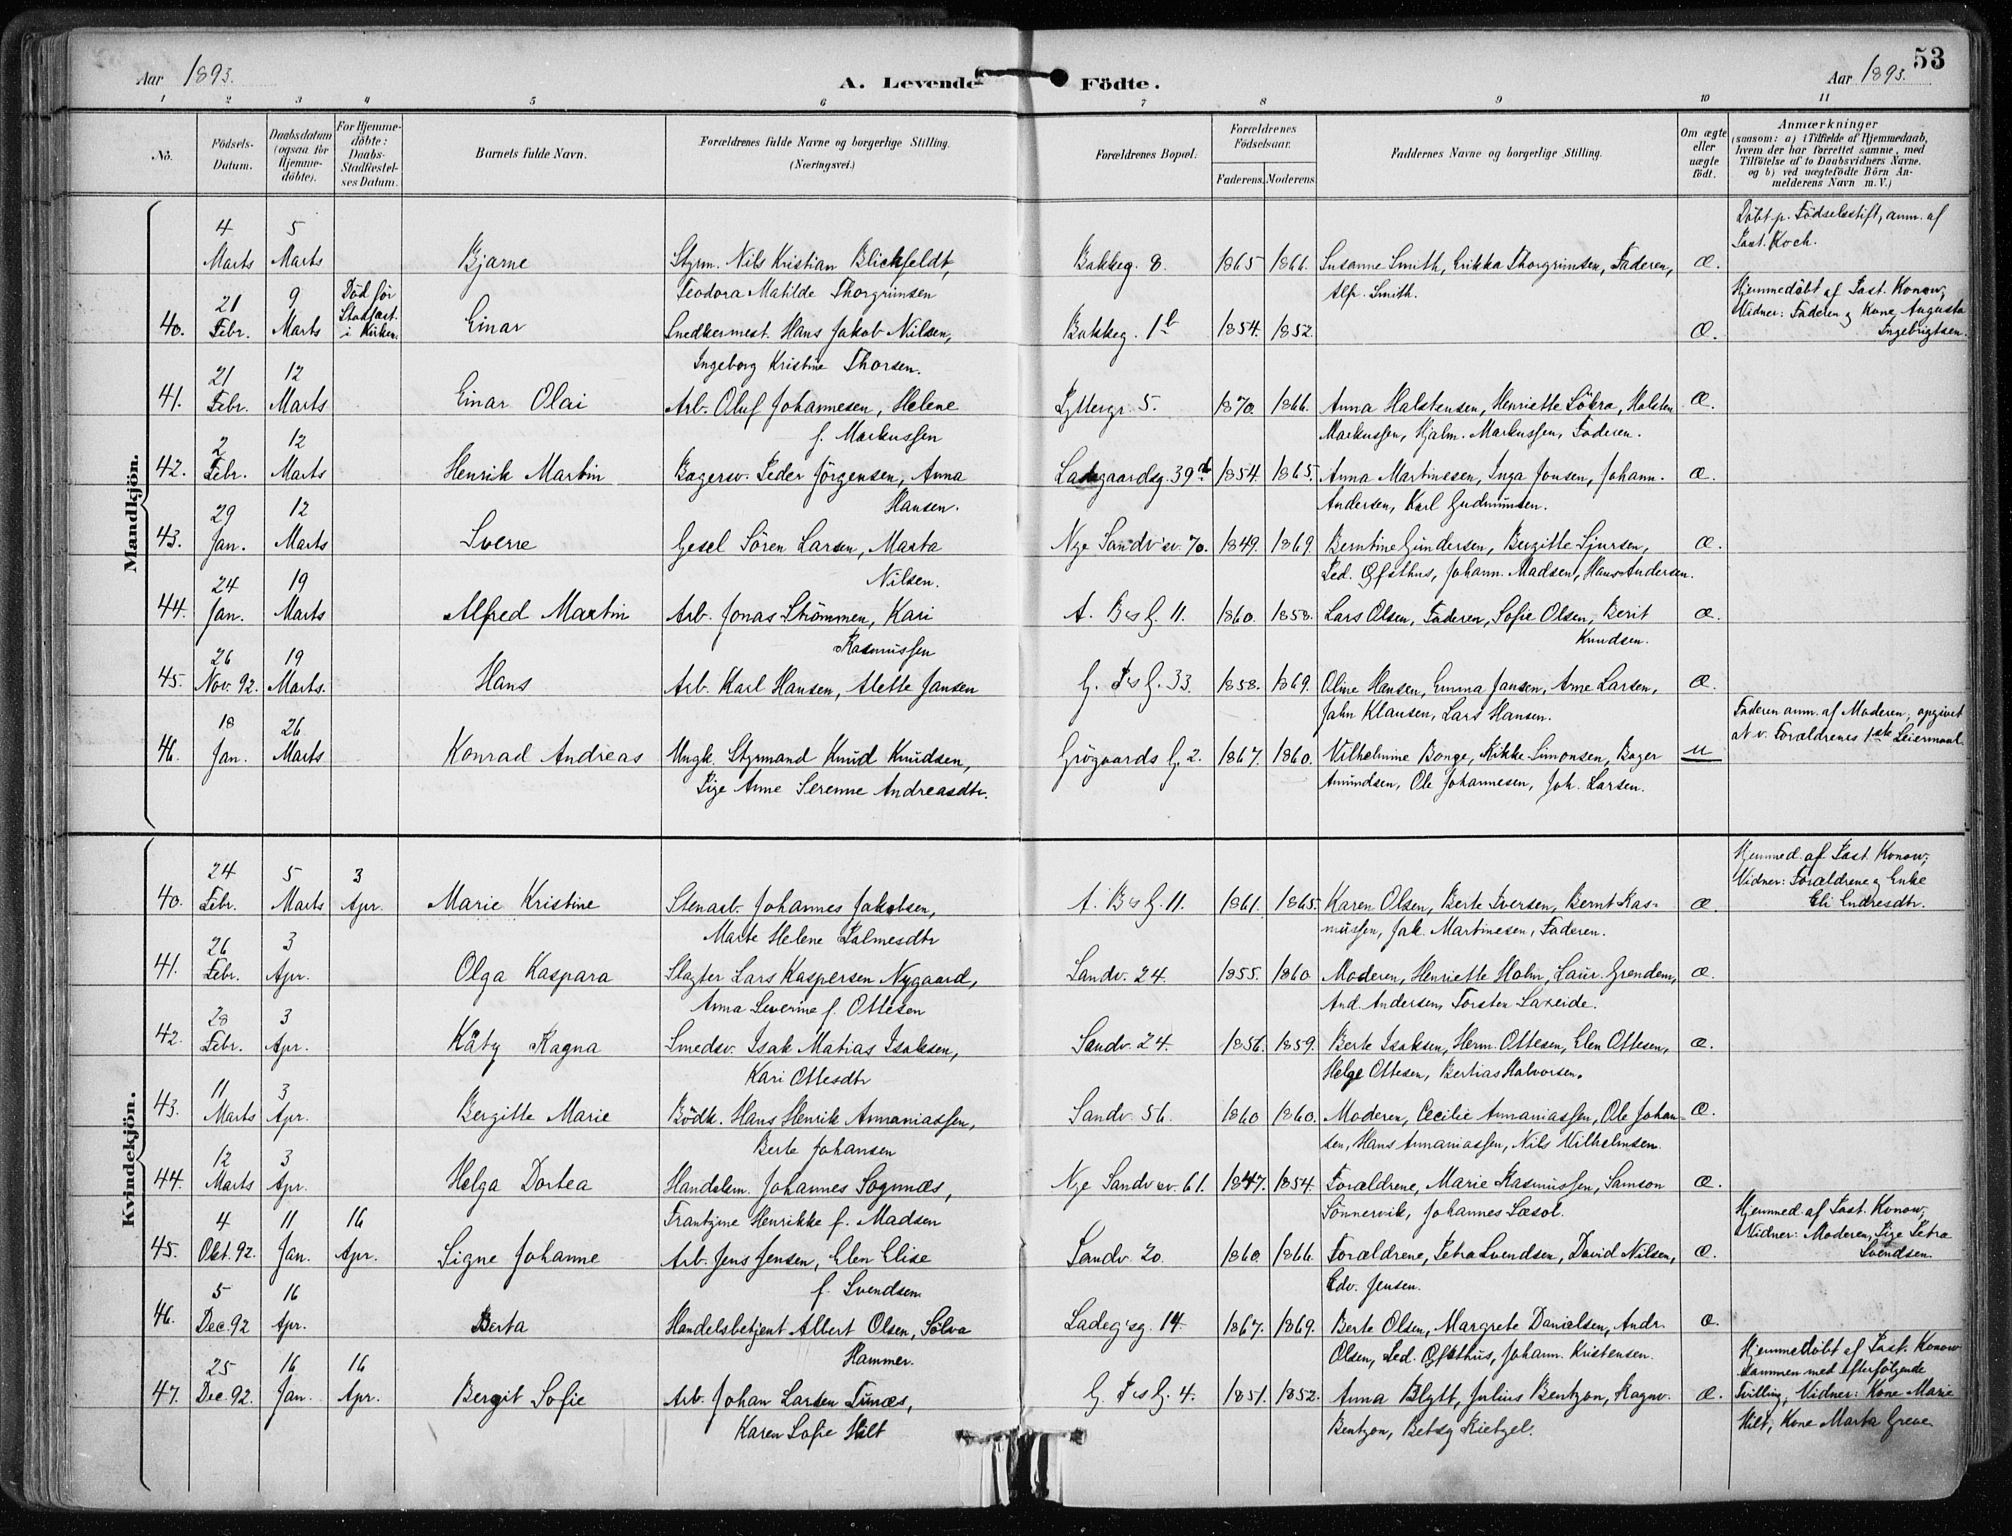 53
Aar 1893. A. Levende Födte. Aar 1893.
1 2 3 4 5 6 7 8 9 10 11
No. Födsels-Datum. Daabsdatum (ogsaa for Hjemme-döbte). For Hjemme-döbte: Daabs-Stadfæstel-ses Datum. Barnets fulde Navn. Forældrenes fulde Navne og borgerlige Stilling. (Næringsvei.) Forældrenes Bopæl. Forældrenes Födselsaar. Faderens. Moderens. Faddernes Navne og borgerlige Stilling. Om ægte eller uægte födt. Anmærkninger (saasom: a) i Tilfælde af Hjemmedaab, hvem der har forrettet samme, med Tilföielse af to Daabsvidners Navne, og b) ved uægtefödte Börn An-melderens Navn m. V.)
Mandkjön.
4 5 Döbt p. Födselsstift, anm. af
Marts Marts Bjarne Styrm. Nils Kristian Blichfeldt, Bakkeg. 8. 1865 1866. Susanne Smith, Erikka Thorgrimsen, Faderen, Æ. Past. Koch.
Teodora Matilde Thorgrimsen Alfr. Smith.
21 9 Död för Hjemmedöbt af Past. Konow,
40. Febr. Marts Stadfæst. i Kirken. Einar Snedkermest. Hans Jakob Nilsen, Bakkeg. 1b 1854. 1852. Æ. Vidner: Faderen og Kone Augusta
Ingeborg Kristine Thorsen. Ingebrigtsen.
21 12
41. Febr. Marts Einar Olai Arb. Oluf Johannesen, Helene Pyttergr. 5. 1870. 1866. Anna Halstensen, Henriette Lökra, Halsten Æ.
f. Markussen Markussen, Hjalm. Markussen, Faderen.
2 12
42. Febr. Marts Henrik Martin Bagersv. Peder Jörgensen, Anna Ladegaardsg. 39d 1854. 1865. Anna Martinssen, Inga Jonsen, Johann. Æ.
Hansen. Andersen, Karl Gudmunsen.
29 12
43. Jan. Marts Sverre Gesel Sören Larsen, Marta Nye Sandv'sv. 70. 1849. 1869. Berntine Gundersen, Bergitte Sjursen, Æ.
Nilsen. Ped. Ofsthus, Johann. Madsen, Hans Andersen.
24 19
44. Jan. Marts Alfred Martin Arb. Jonas Strömmen, Kari A. Bs G. 11. 1860. 1858. Lars Olsen, Faderen, Sofie Olsen, Berit Æ.
Rasmussen Knudsen.
26 19
45. Nov. 92. Marts. Hans Arb. Karl Hansen, Alette Jansen G. Ps G. 33. 1858. 1869. Oline Hansen, Emma Jansen, Arne Larsen, Æ.
Jahn Klausen, Lars Hansen.
18 26 Faderen anm. af Moderen, opgivet
46. Jan. Marts Konrad Andreas Ungk. Styrmand Knud Knudsen, Grögaards G. 2. 1867. 1860. Vilhelmine Bonge, Rikke Simonsen, Bager U at v. Forældrenes 1ste Leiermaal.
Pige Anne Serenne Andreasdtr. Amundsen, Ole Johannesen, Joh. Larsen.
Kvindekjön.
24 5 3 Hjemmed. af Past. Konow,
40. Febr. Marts Apr. Marie Kristine Stenarb. Johannes Jakobsen, A. Bs G. 11. 1861. 1865. Karen Olsen, Berte Iversen, Bernt Ras- Æ. Vidner: Forældrene og Enke
Marte Helene Palmesdtr mussen, Jak. Martinesen, Faderen. Eli Endresdtr.
26 3
41. Febr. Apr. Olga Kaspara Slagter Lars Kaspersen Nygaard, Sandv. 24. 1855. 1860 Moderen, Henriette Holm, Laur. Grendem, Æ.
Anna Severine f. Ottesen And. Andersen, Torsten Laxeide.
28 3
42. Febr. Apr. Käty Ragna Smedsv. Isak Matias Isaksen, Sandv. 24. 1856. 1859. Berte Isaksen, Herm. Ottesen, Elen Ottesen, Æ.
Kari Ottesdtr Helge Ottesen, Bertias Halvorsen.
11 3
43. Marts Apr. Bergitte Marie Bödk. Hans Henrik Annaniassen, Sandv. 56. 1860 1860. Moderen, Cecilie Annaniassen, Ole Johan- Æ.
Berte Johansen sen, Hans Annaniassen, Nils Vilhelmsen.
12 3
44. Marts Apr. Helga Dortea Handelsm. Johannes Sognnæs, Nye Sandv'sv. 61. 1847. 1854. Forældrene, Marie Rasmussen, Samson Æ.
Frantzine Henrikke f. Madsen Sönnervik, Johannes Læsol.
4 11 16 Hjemmed. af Past. Konow,
45. Okt. 92. Jan. Apr. Signe Johanne Arb. Jens Jensen, Elen Elise Sandv. 20. 1860. 1866. Forældrene, Petra Svendsen, David Nilsen, Æ. Vidner: Moderen, Pige Petra
f. Svendsen Edv. Jensen. Svendsen.
5 16
46. Dec. 92 Apr. Berta Handelsbetjent Albert Olsen, Sölva Ladeg'sg. 14. 1867. 1869. Berte Olsen, Margrete Danielsen, Andr. Æ.
Hammer. Olsen, Ped. Ofsthus, Johann. Kristensen.
25 16 16 Hjemmedöbt af Past. Konow
47. Dec. 92. Jan. Apr. Bergit Sofie Arb. Johan Larsen Tunæs, G Ps G. 4. 1851. 1852. Anna Blytt, Julius Bentzon, Ragnv. Æ. sammen med efterfölgende
Karen Sofie Hilt Bentzon, Betsy Rietzel. Tvilling, Vidner: Kone Marie
Hilt, Kone Marta Greve